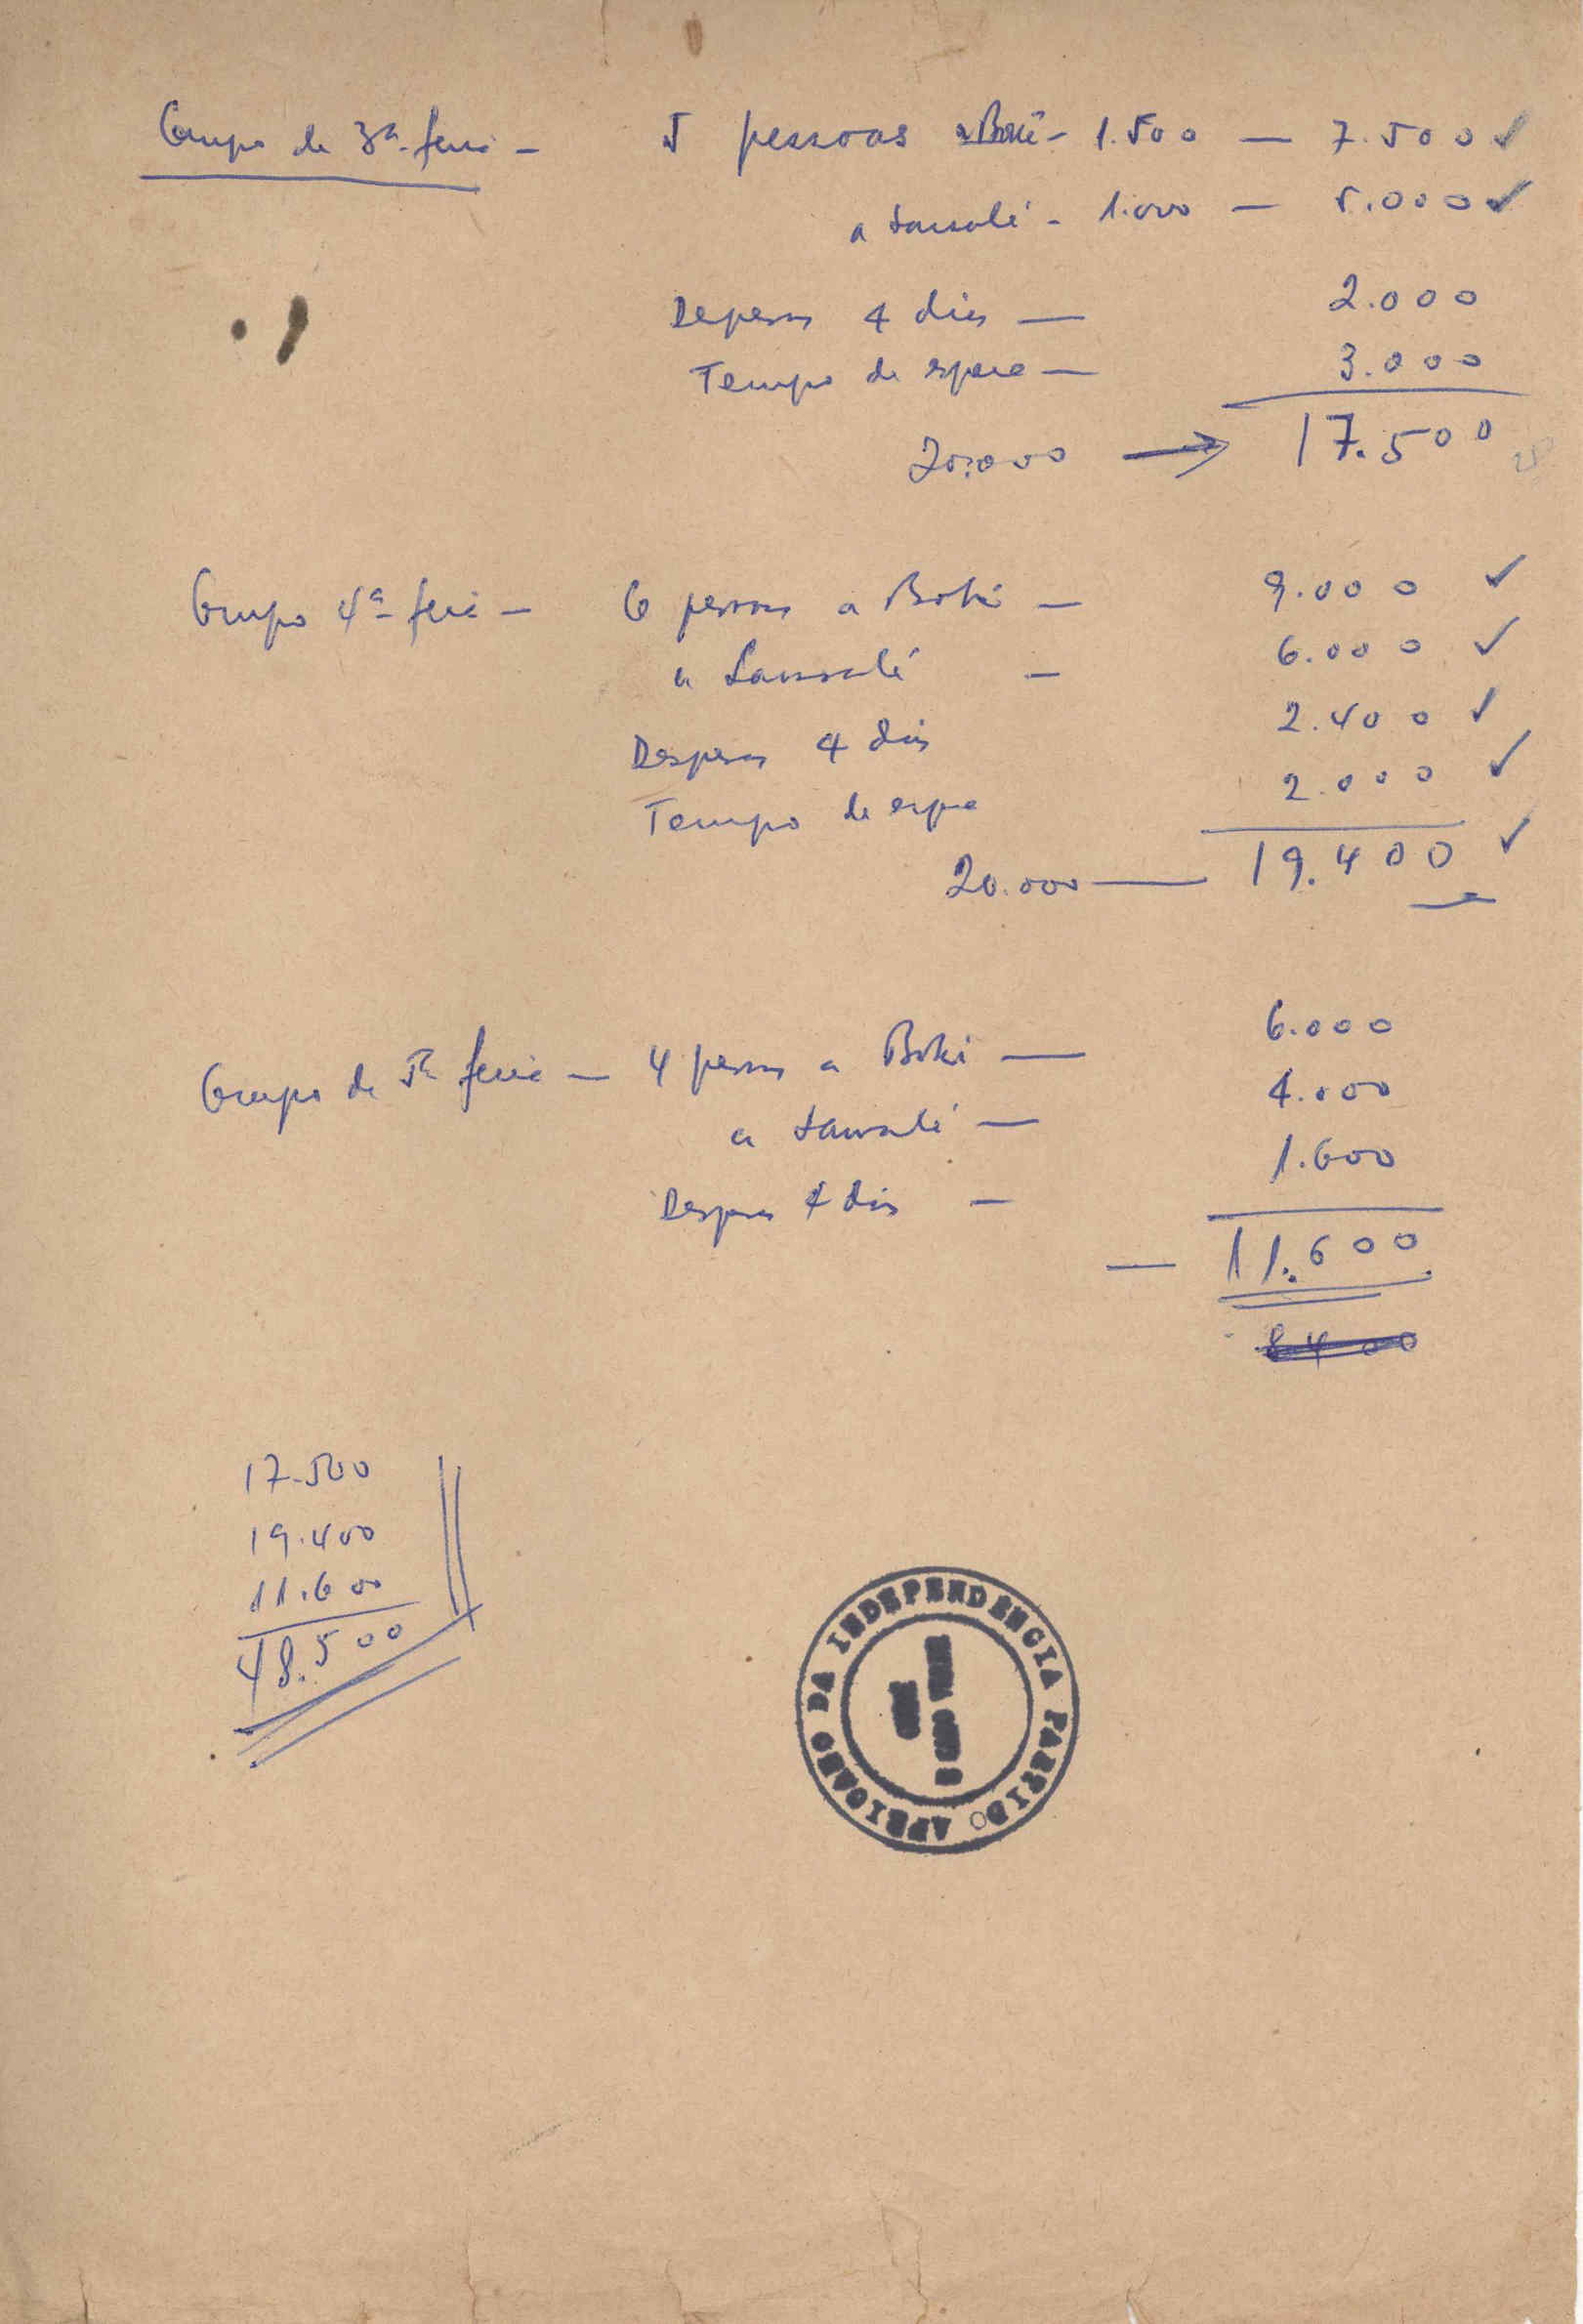 Grupo de 3ª feira - 5 pessoas a Boké - 1.500 — 7.500 ✓
a Sansalé - 1.000 — 5.000 ✓
Despesas 4 dias — 2.000
Tempo de espera — 3.000
20.000 → 17.500
Grupo 4ª feira - 6 pessoas a Boké — 9.000 ✓
a Sansalé — 6.000 ✓
Despesas 4 dias 2.400 ✓
Tempo de espera 2.000 ✓
20.000 — 19.400 ✓
Grupo de 5ª feira — 4 pessoas a Boké — 6.000
a Sansalé — 4.000
Despesas 4 dias — 1.600
— 11.600
8400
17.500
19.400
11.600
48.500
PARTIDO AFRICANO DA INDEPENDENCIA